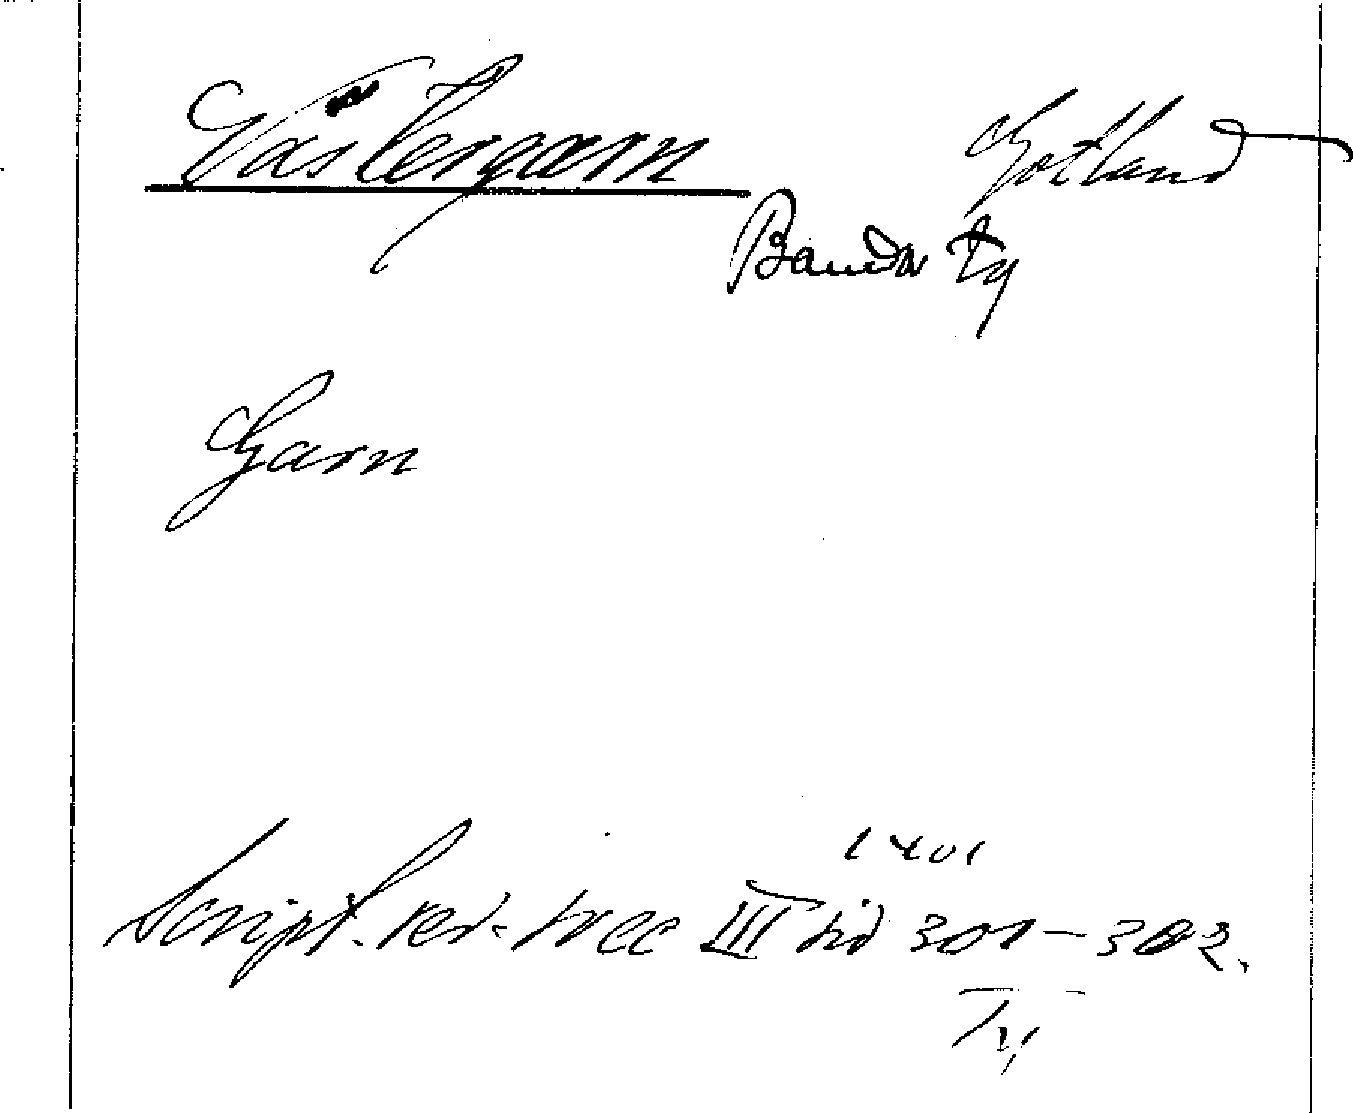 Västergarn Gotland
Banda tg
Garn
1401
Script. rer. svec III sid 301-302.